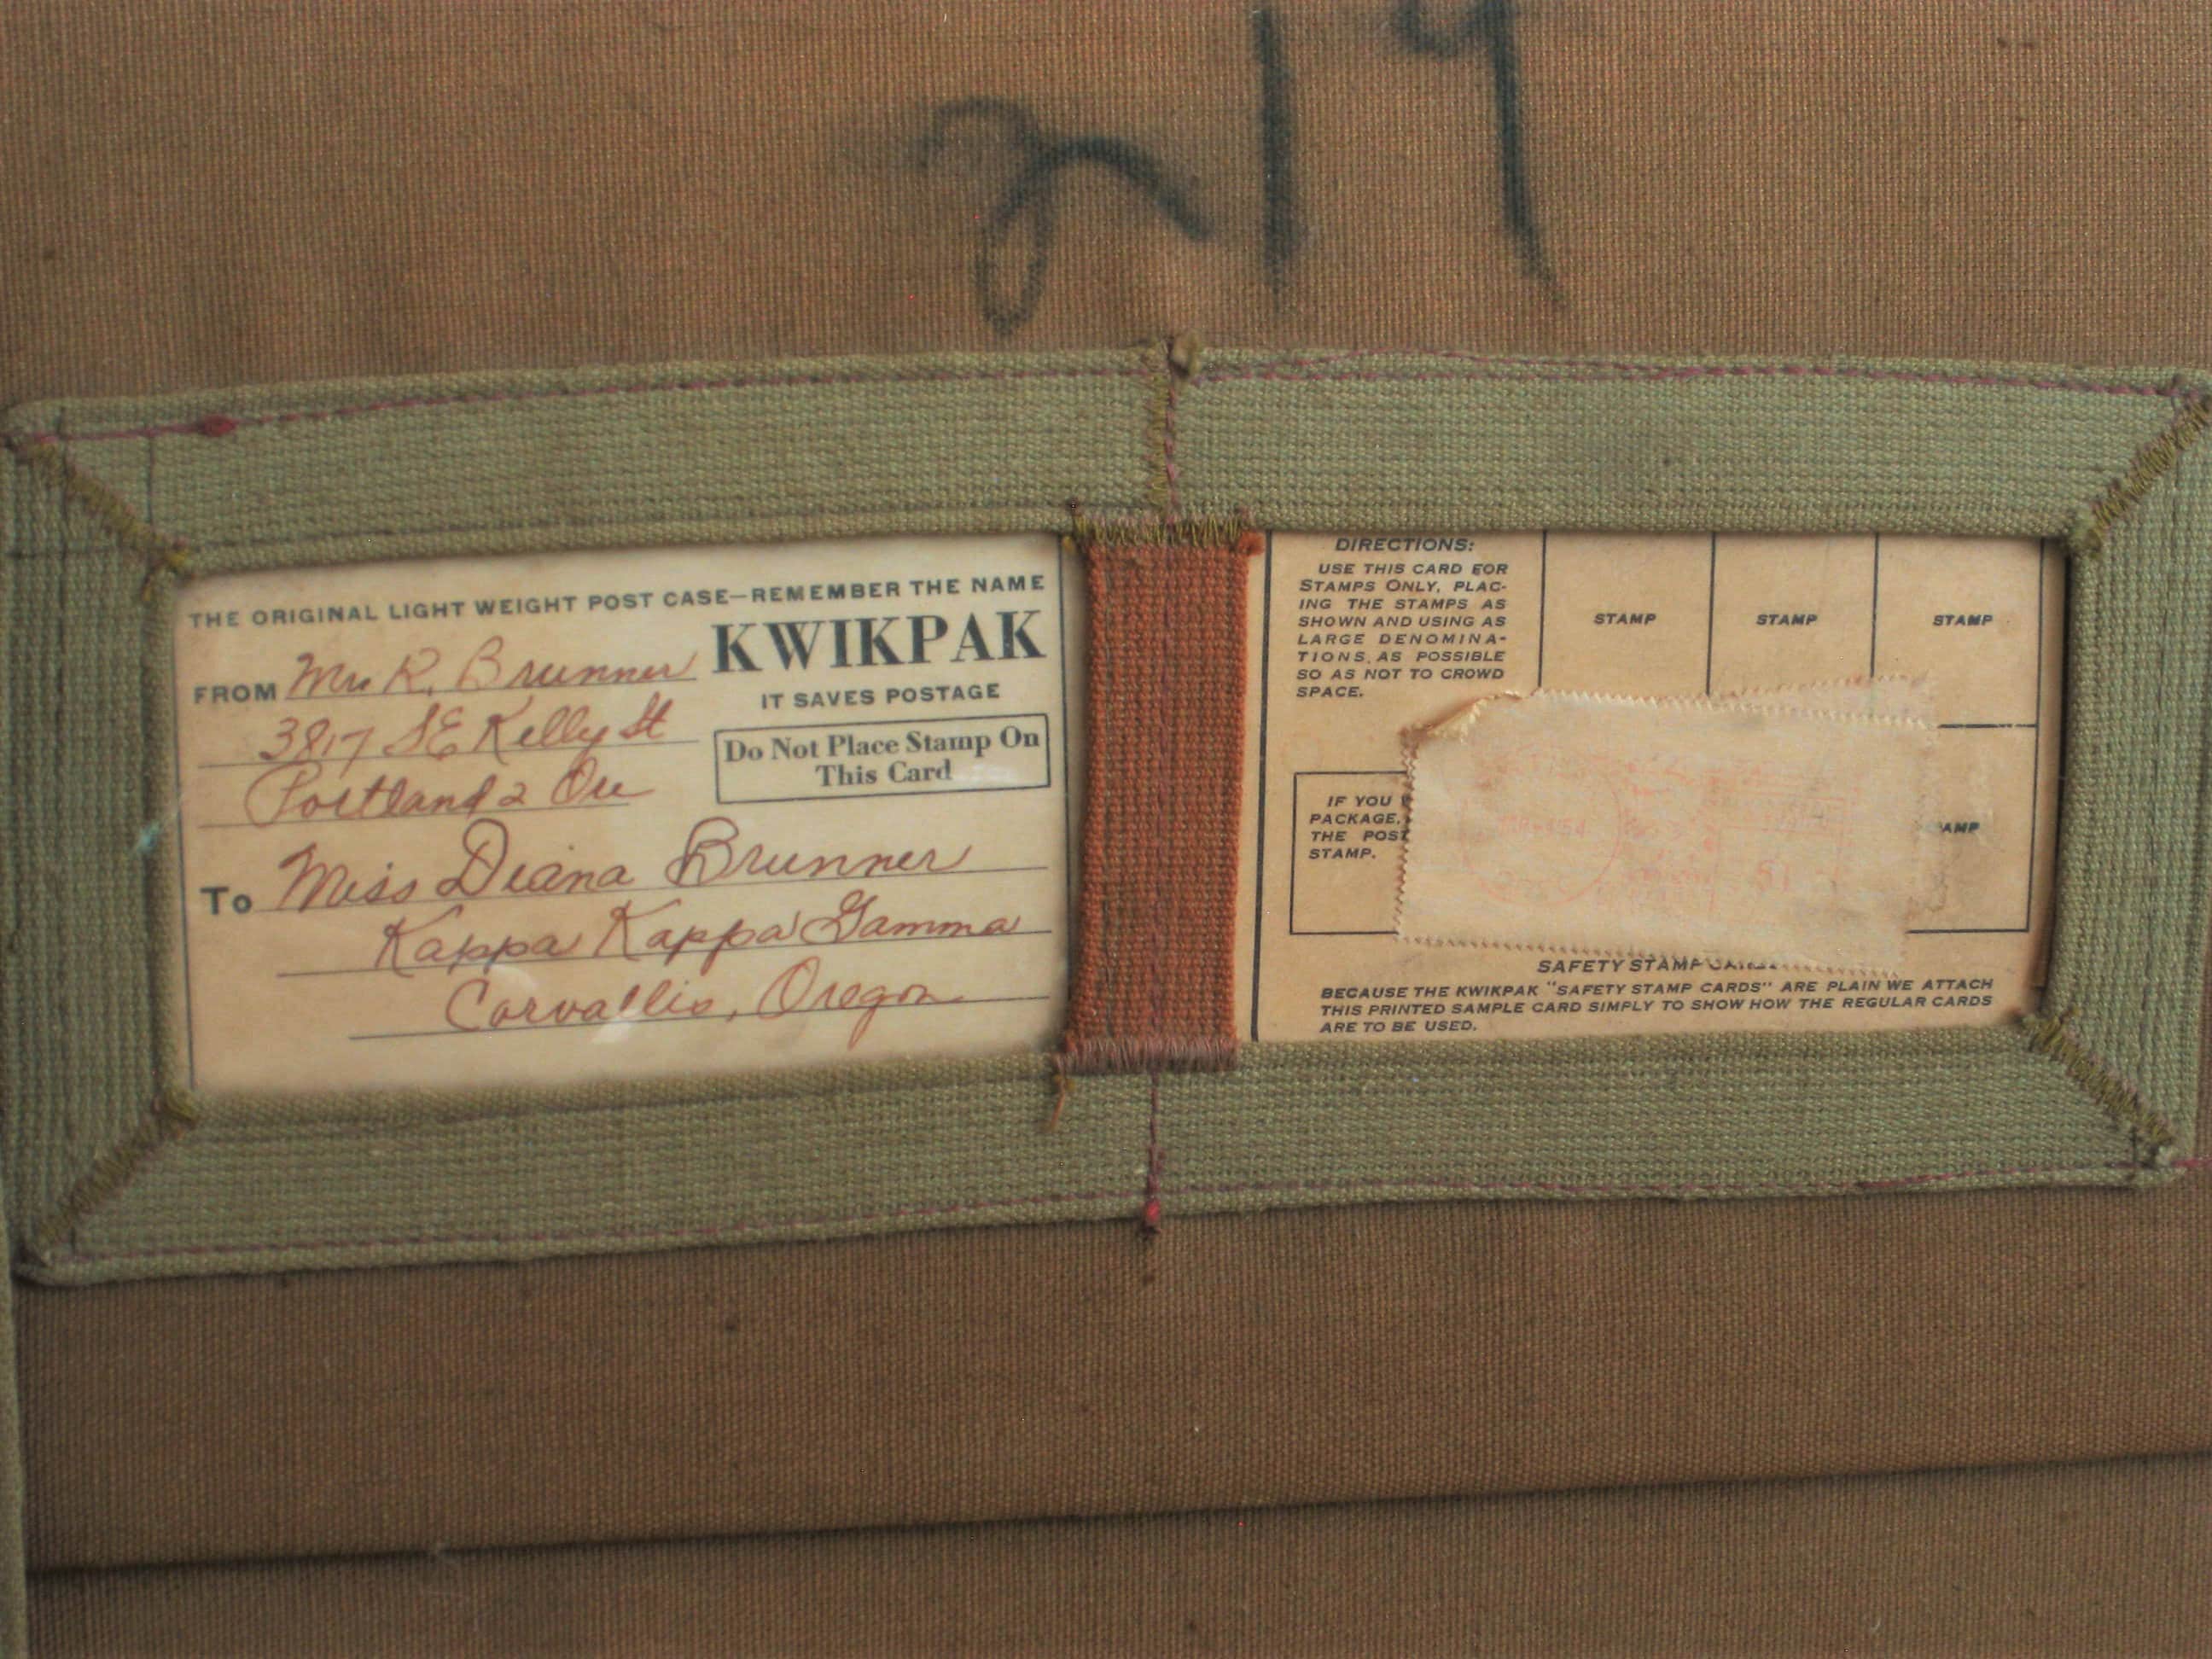 THE ORIGINAL LIGHT WEIGHT POST CASE—REMEMBER THE NAME
KWIKPAK
IT SAVES POSTAGE
Do Not Place Stamp On
This Card
FROM Mrs R. Brunner
3817 SE Kelly St
Portland 2 Ore
To Miss Diana Brunner
Kappa Kappa Gamma
Corvallis, Oregon
DIRECTIONS:
USE THIS CARD FOR
STAMPS ONLY, PLAC-
ING THE STAMPS AS
SHOWN AND USING AS
LARGE DENOMINA-
TIONS, AS POSSIBLE
SO AS NOT TO CROWD
SPACE.
STAMP STAMP STAMP
IF YOU
PACKAGE,
THE POST
STAMP.
AMP
SAFETY STAMP
BECAUSE THE KWIKPAK "SAFETY STAMP CARDS" ARE PLAIN WE ATTACH
THIS PRINTED SAMPLE CARD SIMPLY TO SHOW HOW THE REGULAR CARDS
ARE TO BE USED.